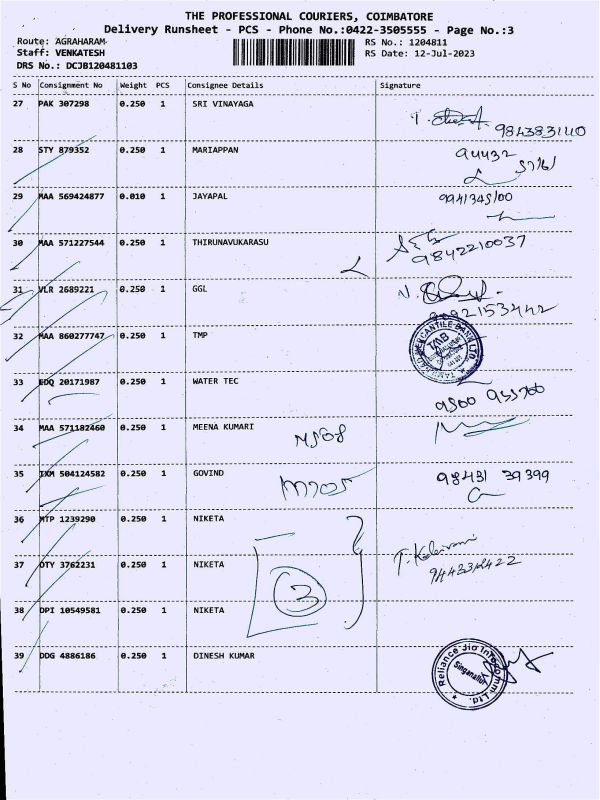 THE PROFESSIONAL COURIERS, COIMBATORE
Delivery Runsheet - PCS - Phone No.:0422-3505555 - Page No.:3
Route: AGRAHARAM
RS No.: 1204811
Staff: VENKATESH
RS Date: 12-Jul-2023
DRS No.: DCJB120481103
S No Consignment No Weight PCS Consignee Details Signature
27 PAK 307298 0.250 1 SRI VINAYAGA
9843831140
28 STY 879352 0.250 1 MARIAPPAN 94432
29 MAA 569424877 0.010 1 JAYAPAL
30 MAA 571227544 0.250 1 THIRUNAVUKARASU
9842210037
31 VLR 2689221 0.250 1 GGL
32 MAA 860277747 0.250 1 TMP
TMB
33 EDQ 20171987 0.250 1 WATER TEC
34 MAA 571182460 0.250 1 MEENA KUMARI
35 IXM 504124582 0.250 1 GOVIND 98431 39399
36 MTP 1239290 0.250 1 NIKETA
37 OTY 3762231 0.250 1 NIKETA
3
38 DPI 10549581 0.250 1 NIKETA
39 DDG 4886186 0.250 1 DINESH KUMAR
Reliance Jio Infocomm Ltd.
Singanallur